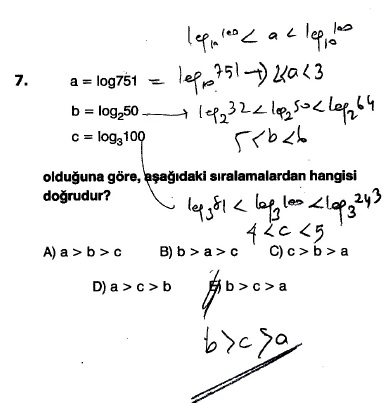 log₁₀100 < a < log₁₀100
7. a = log751 = log₁₀751 → 2<a<3
b = log₂50 → log₂32 < log₂50 < log₂64
5<b<6
c = log₃100
olduğuna göre, aşağıdaki sıralamalardan hangisi
doğrudur?
log₃81 < log₃100 < log₃243
4 < c < 5
A) a > b > c B) b > a > c C) c > b > a
D) a > c > b E) b > c > a
b>c>a